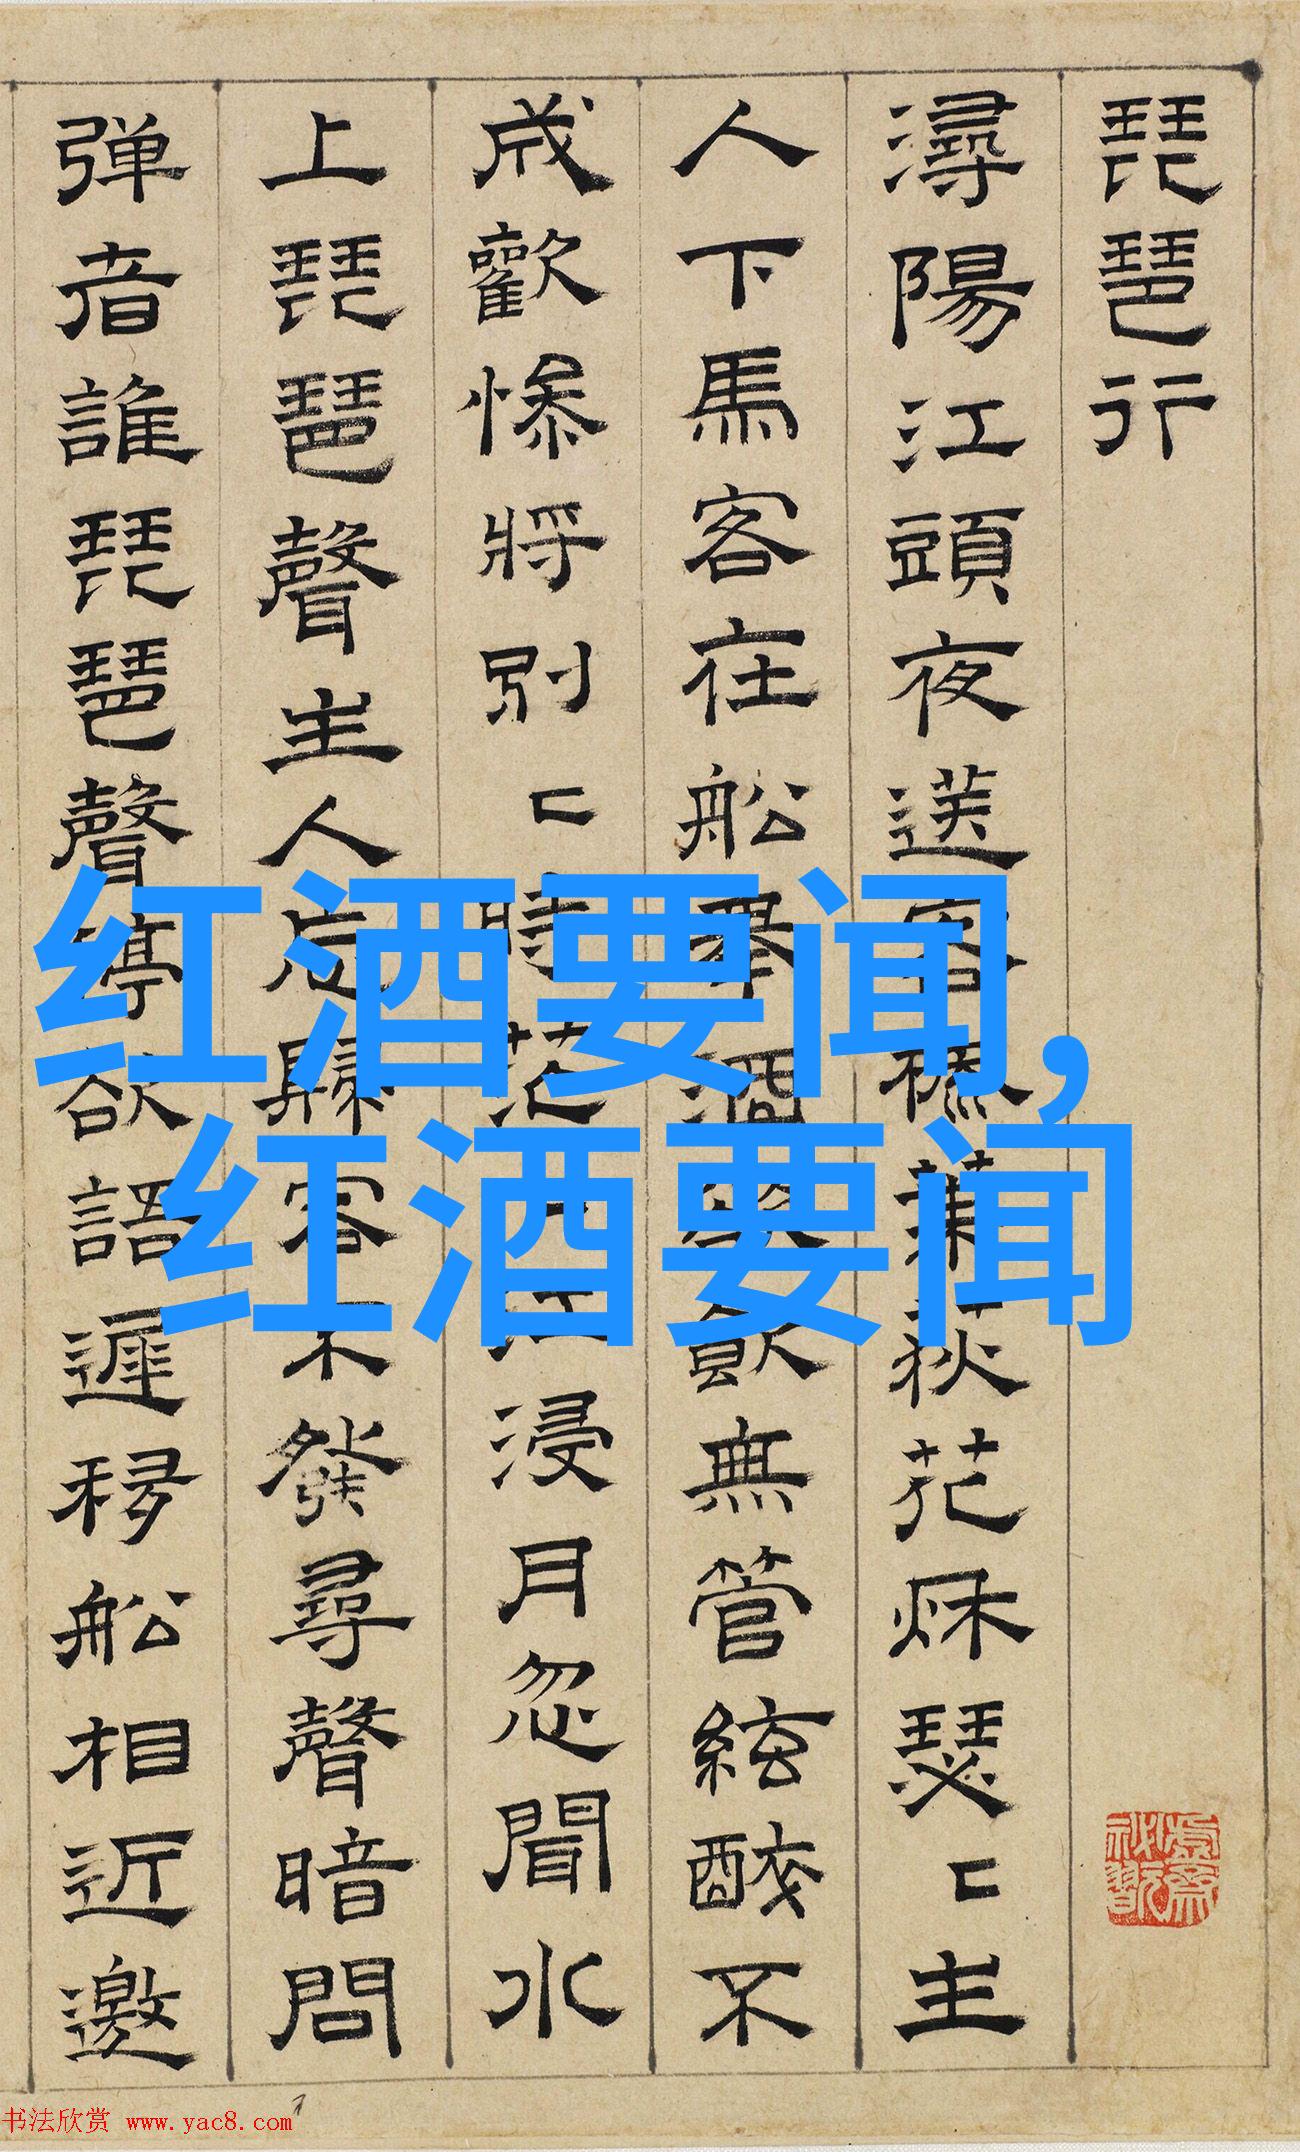 琵琶行
潯陽江頭夜送客楓葉荻花秌瑟〻主
人下馬客在船舉酒欲飲無管絃醉不
成歡慘將別〻時茫〻江浸月忽聞水
上琵琶聲主人忘歸客不發尋聲暗問
弹者誰琵琶聲停欲語遲移船相近邀
红酒要闻,
红酒要闻
书法欣赏 www.yac8.com